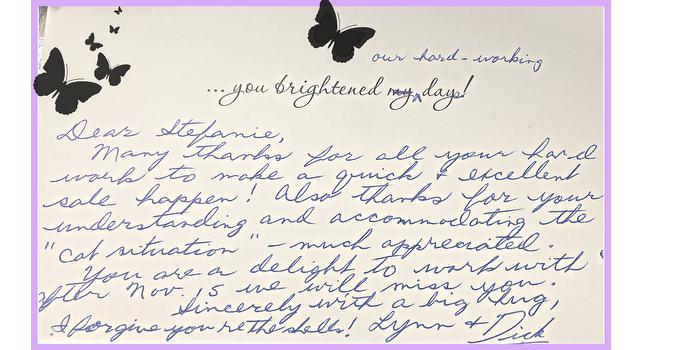 our hard-working
...you brightened my days!
Dear Stefanie,
Many thanks for all your hard
work to make a quick & excellent
sale happen! Also thanks for your
understanding and accommodating the
"cat situation" - much appreciated.
You are a delight to work with
after Nov. 15 we will miss you.
Sincerely with a big hug,
I forgive you re the shells! Lynn & Dick